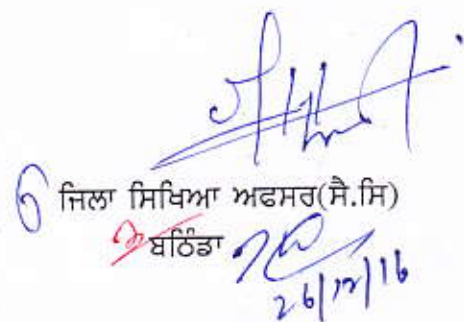 ਜਿਲਾ ਸਿਖਿਆ ਅਫਸਰ(ਸੈ.ਸਿ)
ਬਠਿੰਡਾ
26/12/16